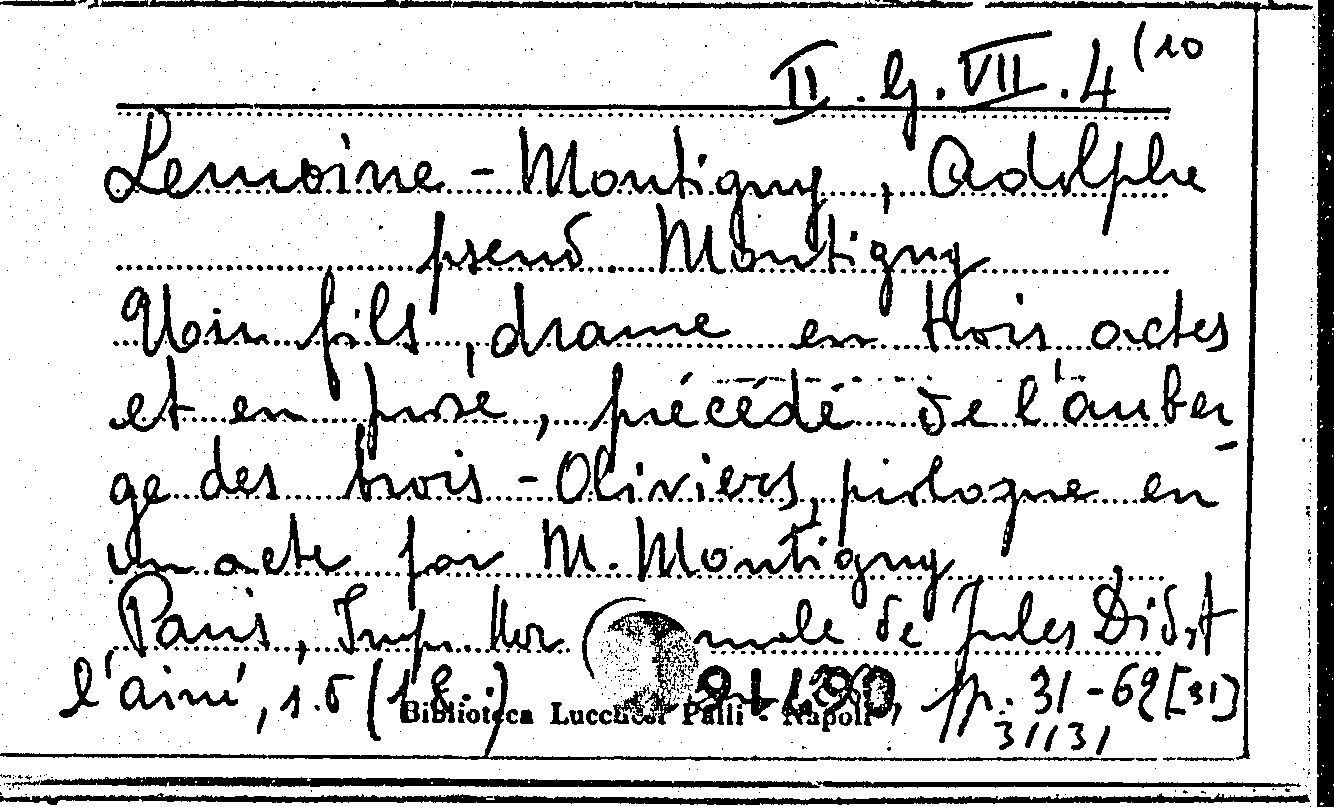 II. G. VII. 4 (10
Lemoine - Montigny, Adolphe
pseud Montigny
Un fils, drame en trois actes
et en prose, précédé de l'auber-
ge des trois - Oliviers, prologue en
un acte par M. Montigny
Paris, Imp. Nor male de Jules Didot
l'ainé, s.d (18..) pp. 31-62 [31]
Biblioteca Lucchesi Palli - Napoli
31131